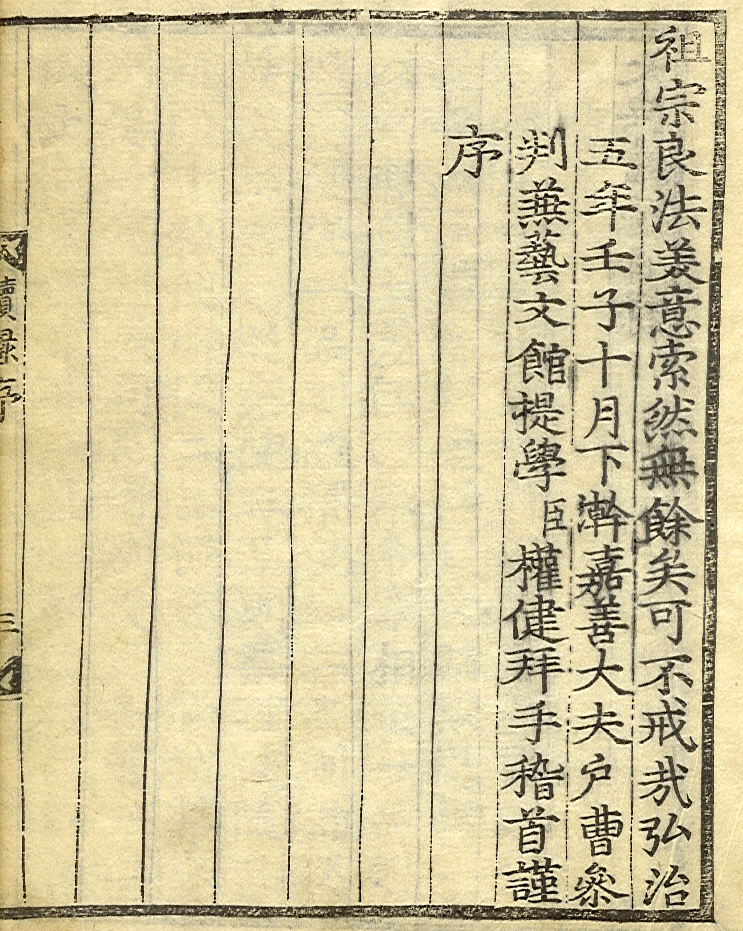 祖宗良法美意索然無餘矣可不戒㦲弘治
五年壬子十月下澣嘉善大夫户曹叅
判兼藝文館提學臣權健拜手稽首謹
序
續録序
三